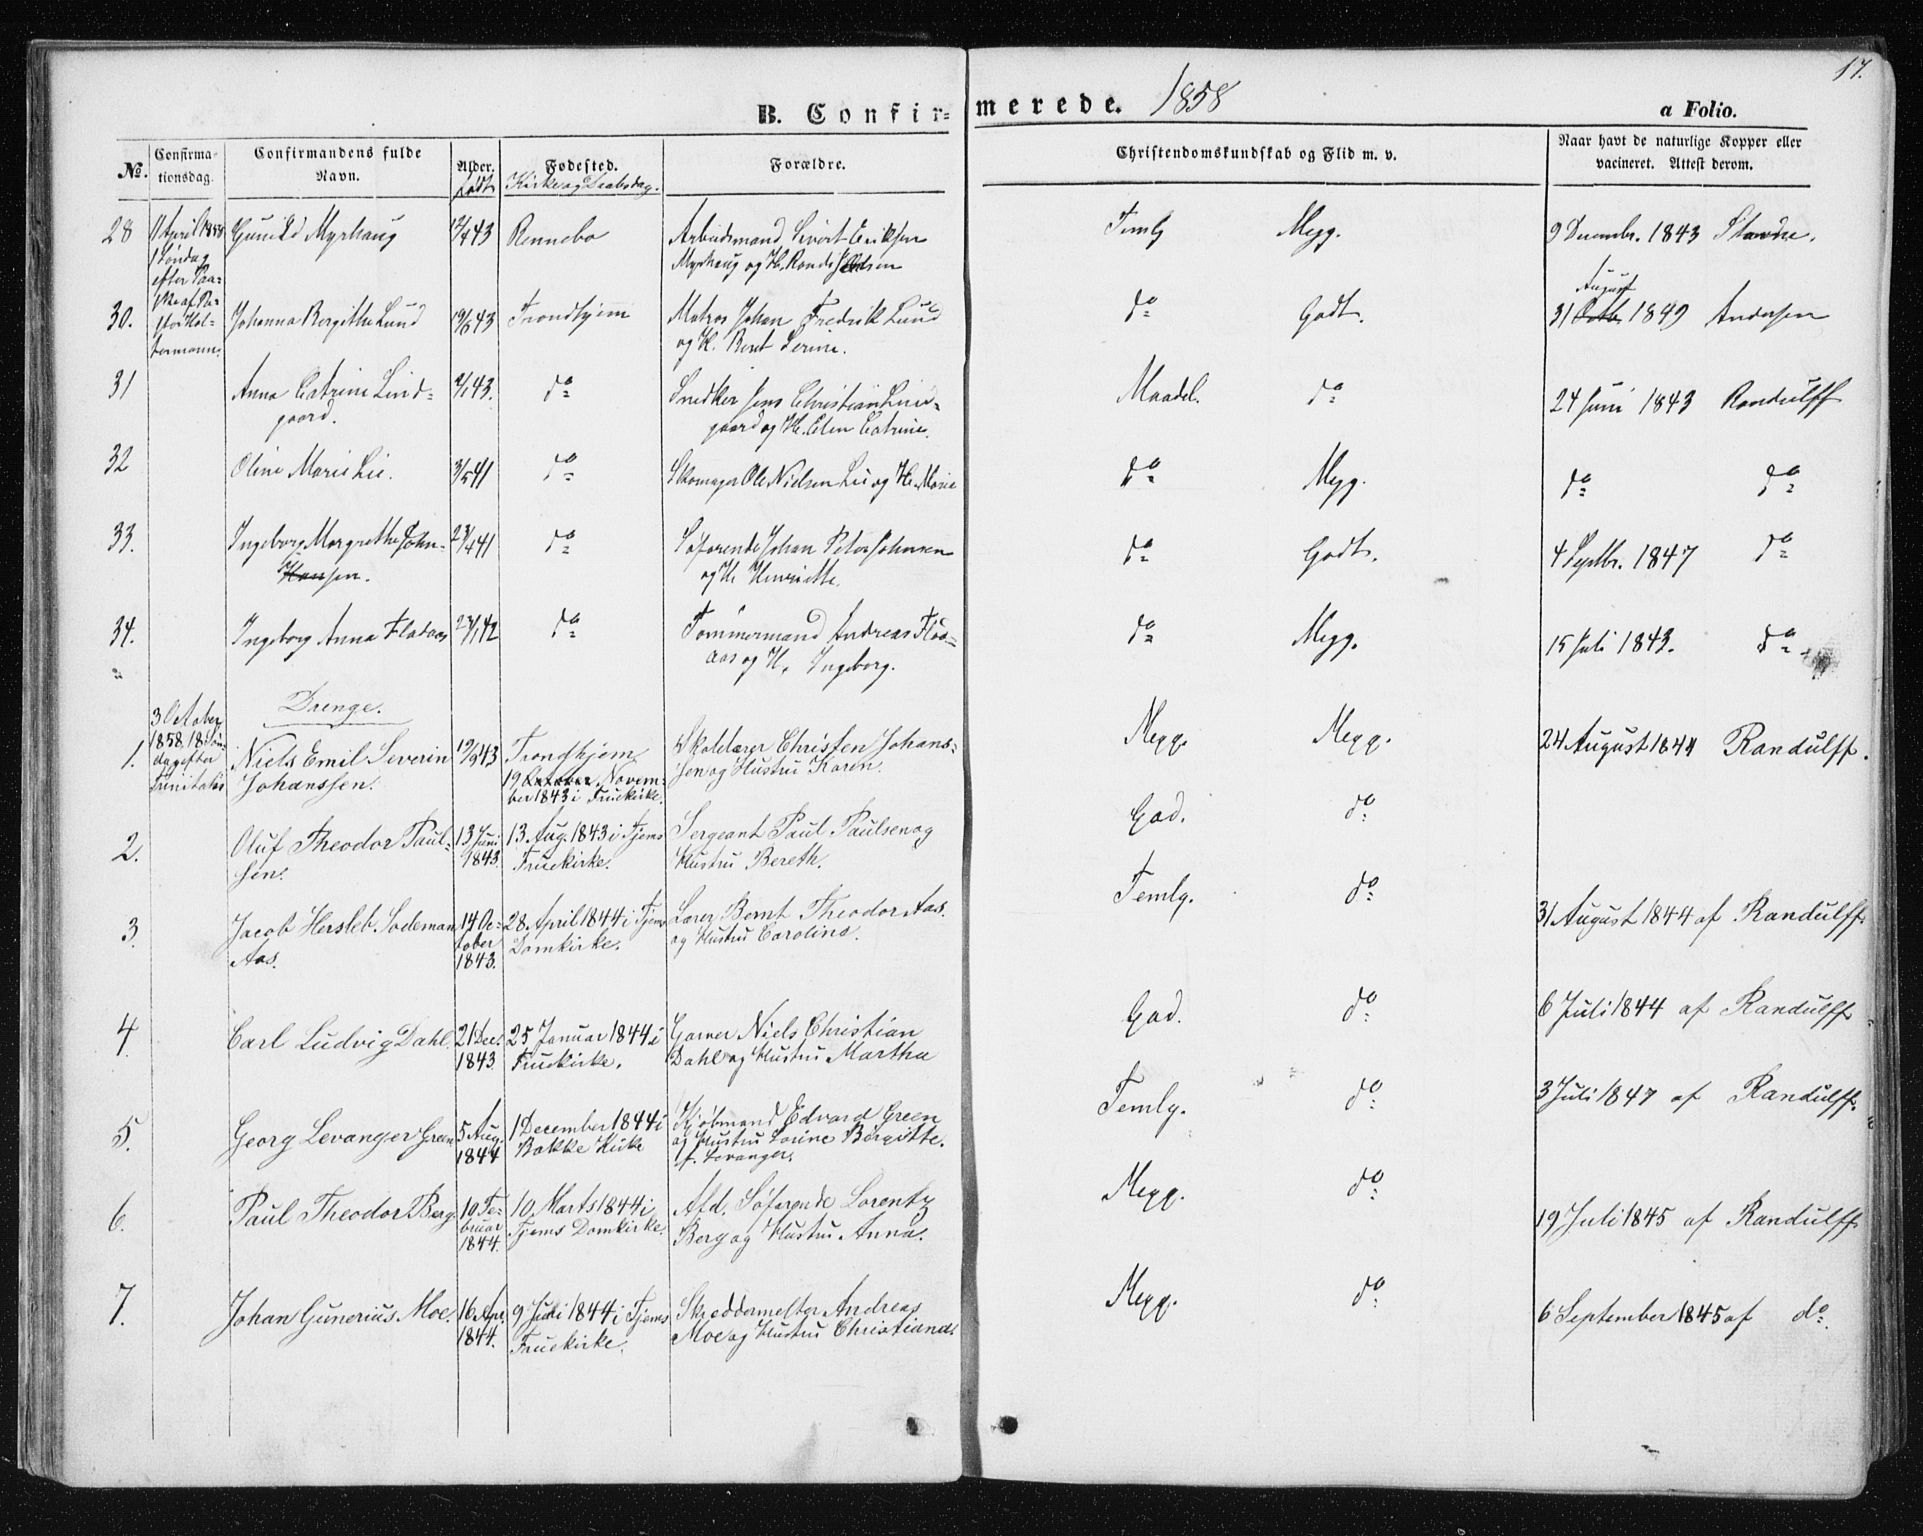 17.
B. Confirmerede. 1858
a Folio.
No. Confirmationsdag. Confirmandens fulde Navn. Alder. født Fødested. Kirke og Daabsdag. Forældre. Christendomskundskab og Flid m. v. Naar havt de naturlige Kopper eller vacineret. Attest derom.
28 11 April 1858 1 Søndag efter Paaske af Pastor Holtermann. Gunild Myrhaug 43 Rennebo Arbeidsmand Sivert Eriksen
Myrhaug og H. Temlg Megg. 9 Decembr. 1843
30. Johanna Bergithe Lund 43 Trondhjem Matros Johan Fredrik Lund
og H. Berit Serine. do Godt. 31 August 1849 Andersen
31 Anna Catrine Lind- 43. do Snedker Jens Christian Lind-
gaard. gaard og H. Elen Catrine. Maadel. do 24 Juni 1843 Randulff
32 Oline Marie Lie. 3/5 41 do Skomager Ole Nielsen Lie og H. Marie do Megg. do do
33. Ingeborg Margrethe John- 23/4 41 do Søfarende Johan Peter Johnsen
Hansen. og H. Henriette. do Godt. 4 Septbr. 1847 do
34. Ingeborg Anna Fladaas 42 do Tømmermand Andreas Flad-
aas og H. Ingeborg. do Megg. 15 Juli 1843. do
Drenge.
1. 3 October 1858. 18 Søndag efter Trinitatis Niels Emil Severin 19/9 43 Trondhjem Skolelærer Christen Johans-
Johanssen. 19 October November 1843 i Fruekirke. sen og Hustru Karen. Megg. Megg. 24 August 1844 Randulff.
2. Oluf Theodor Paul- 13 Juni 13. Aug. 1843 i Tjems Sergeant Paul Paulsen og
sen. 1843. Fruekirke. Hustru Bereth. God. do
3. Jacob Hersleb Sodeman 14 Oc- 28. April 1844 i Tjems Bernt Theodor Aas.
Aas. tober 1843. Domkirke. og Hustru Caroline. Temlg. do 31 August 1844 af Randulff
4. Carl Ludvig Dahl. 21 Dec. 25 Januar 1844 i Garver Niels Christian
1843. Fruekirke. Dahl og Hustru Martha God. do 6 Juli 1844 af Randulff
5. Georg Levanger Green 5 Aug. 1 December 1844 i Kjøbmand Edvard Green
1844 Bakke Kirke og Hustru Lorine Birgitte.
f. Levanger. Temlg. do 3 Juli 1847 af Randulff.
6. Paul Theodor Berg 10 Fe- 10. Marts 1844 i Afd. Søfarende Lorentz
bruar 1844. Tjems Domkirke. Berg og Hustru Anna. Megg. do 19 Juli 1845 af Randulff
7. Johan Gunerius Moe. 16 Apr. 9 Juli 1844 i Tjems Skreddermester Andreas
1844. Fruekirke. Moe og Hustru Christiane. Megg. do 6 September 1845 af do.